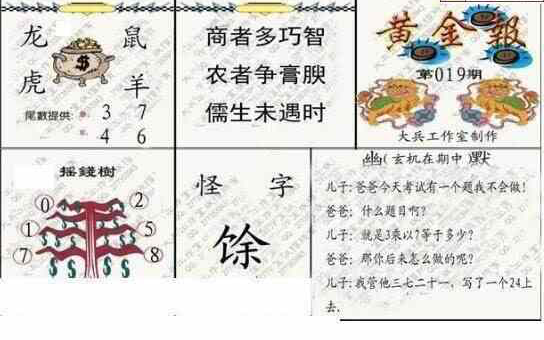 龙 鼠
虎 羊
尾數提供: 3 7
4 6
商者多巧智
农者争膏腴
儒生未遇时
黄金報
第019期
大兵工作室制作
摇錢樹
0 2
1 5
7 8
怪 字
馀
幽(玄机在期中)默
儿子:爸爸今天考试有一个题我不会做!
爸爸: 什么题目啊?
儿子: 就是3乘以7等于多少?
爸爸: 那你后来怎么做的呢?
儿子:我管他三七二十一, 写了一个24上
去.